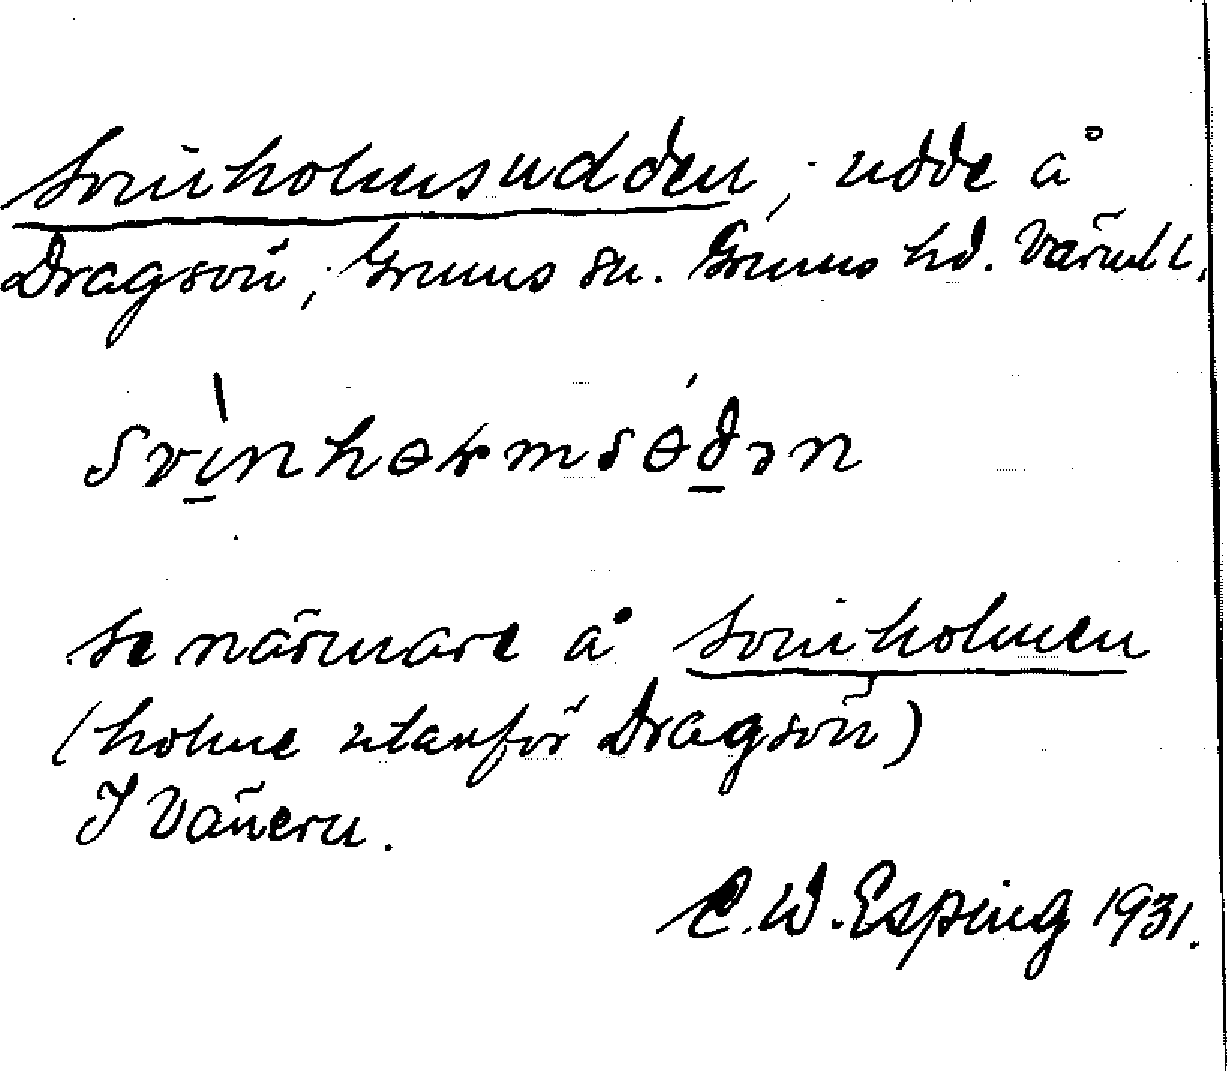 Svinholmsudden, udde å
Dragsön, Grums sn. Grums hd. Värml l.
svinhɵɽmsɵdən
Se närmare å Svinholmen
(holme utanför Dragsön)
I Vänern.
C. W. Esping 1931.